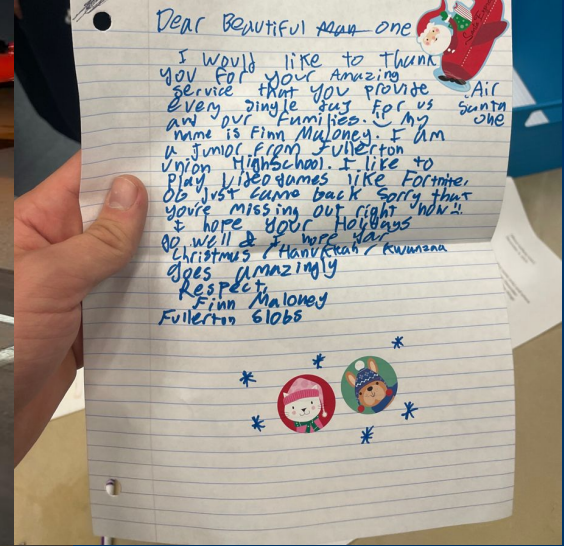 Dear Beautiful man one
I would like to thank
you for your Amazing
service that you provide
every single day for us
and our Families. My
name is Finn Maloney. I am
a junior from Fullerton
Union HighSchool. I like to
Play Videogames like Fortnite,
OG just came back sorry that
you're missing out right now!!
I hope your Holidays
go well & I hope your
Christmas / Hanukkah / Kwanzaa
goes amazingly
Respect,
Finn Maloney
Fullerton
Air
Santa
one